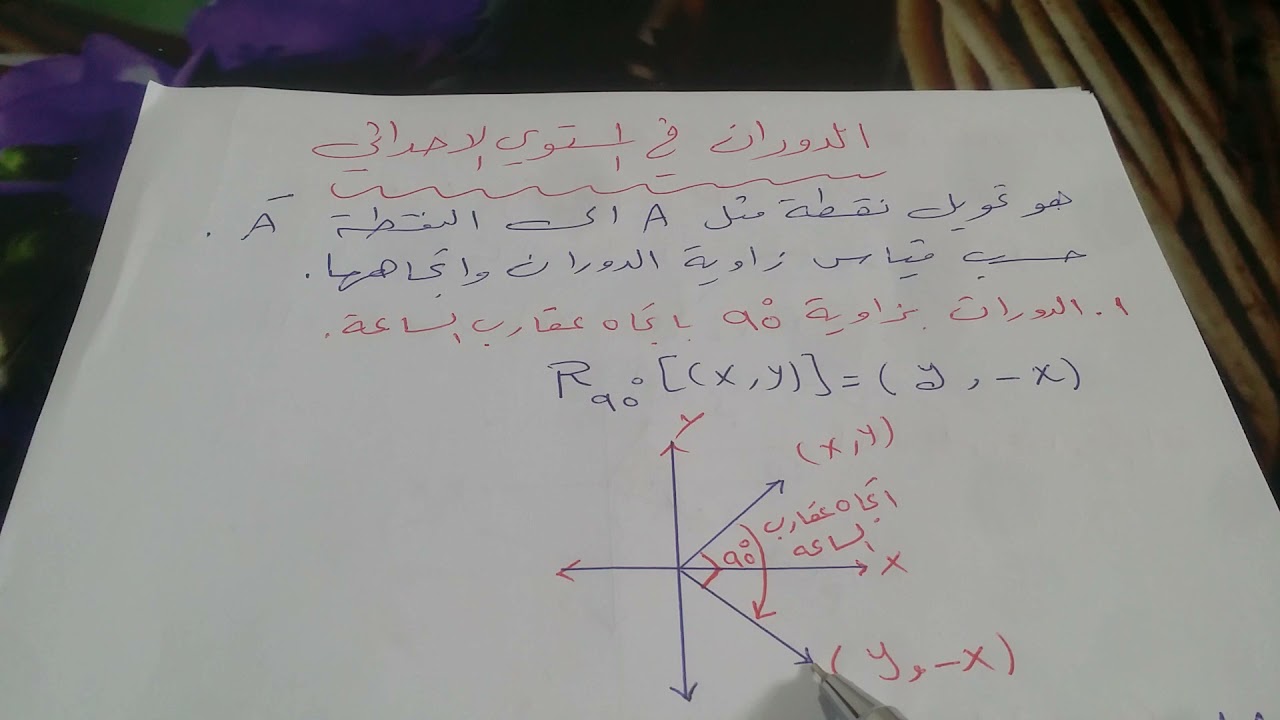 الدوران في المستوي الاحداثي
هو تحويل نقطة مثل A الى النقطة A̅ .
حسب قياس زاوية الدوران واتجاهها.
١. الدوران بزاوية ٩٠° باتجاه عقارب الساعة.
R٩٠° [(x,y)] = (y, -x)
y
(x,y)
اتجاه عقارب
الساعة
٩٠°
x
(y, -x)